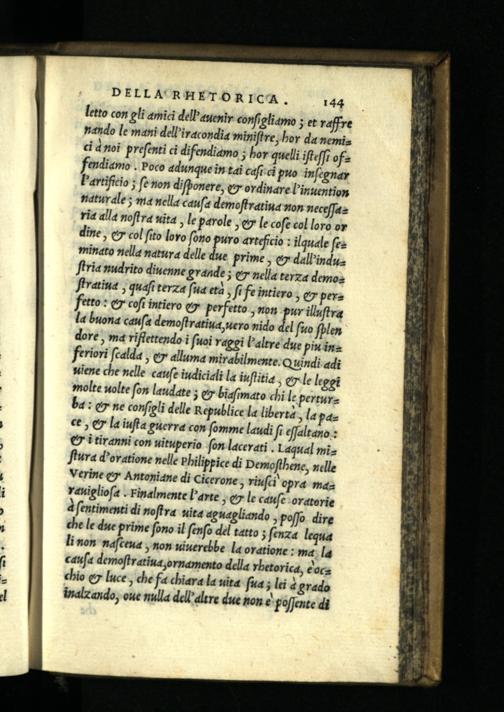 DELLA RHETORICA. 144
letto con gli amici dell'auenir consigliamo; et raffre
nando le mani dell'iracondia ministre, hor da nemi=
ci à noi presenti ci difendiamo; hor quelli istessi of=
fendiamo. Poco adunque in tai casi ci puo insegnar
l'artificio; se non disponere, & ordinare l'inuention
naturale; ma nella causa demostratiua non necessa=
ria alla nostra uita, le parole, & le cose col loro or
dine, & col sito loro sono puro arteficio: ilquale se=
minato nella natura delle due prime, & dall'indu=
stria nudrito diuenne grande; & nella terza demo=
stratiua, quasi terza sua età, si fe intiero, & per=
fetto: & cosi intiero & perfetto, non pur illustra
la buona causa demostratiua, uero nido del suo splen
dore, ma riflettendo i suoi raggi l'altre due piu in=
feriori scalda, & alluma mirabilmente. Quindi adi
uiene che nelle cause iudiciali la iustitia, & le leggi
molte uolte son laudate; & biasimato chi le pertur=
ba: & ne consigli delle Republice la libertà, la pa=
ce, & la iusta guerra con somme laudi si essaltano:
& i tiranni con uituperio son lacerati. Laqual mi=
stura d'oratione nelle Philippice di Demosthene, nelle
Verine & Antoniane di Cicerone, riusci opra ma=
rauigliosa. Finalmente l'arte, & le cause oratorie
à sentimenti di nostra uita aguagliando, posso dire
che le due prime sono il senso del tatto; senza lequa
li non nasceua, non uiuerebbe la oratione: ma la
causa demostratiua, ornamento della rhetorica, è oc=
chio & luce, che fa chiara la uita sua; lei à grado
inalzando, oue nulla dell'altre due non è possente di